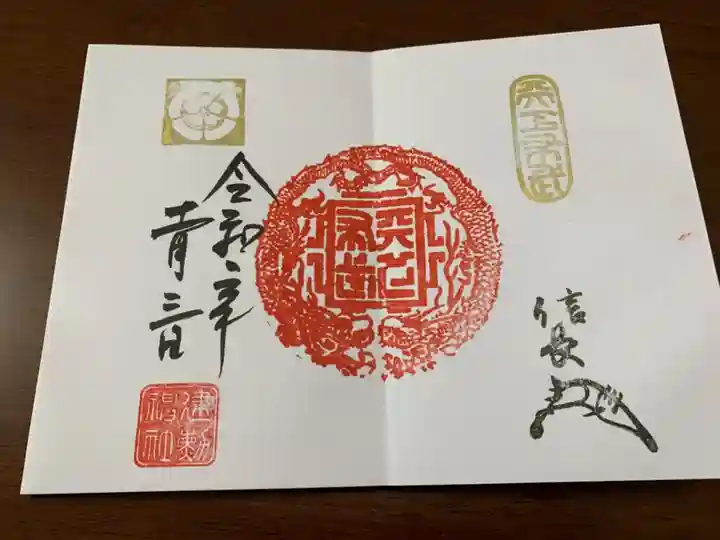 天下布武
信長
天下布武
令和二年
月三日
建勲神社